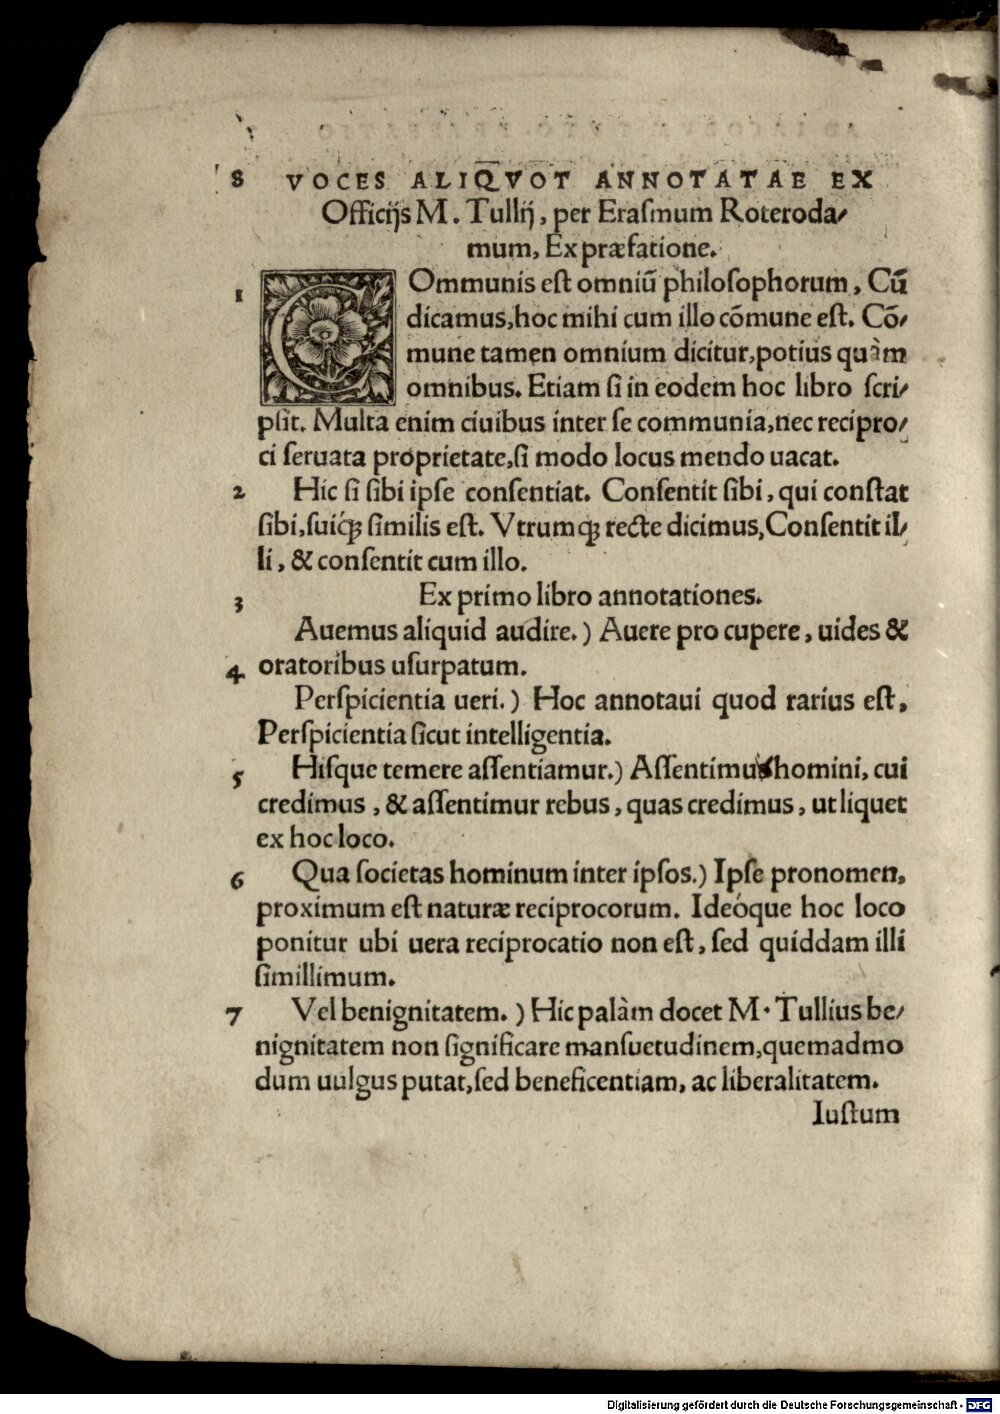 8 VOCES ALIQVOT ANNOTATAE EX
Officijs M. Tullij, per Eraſmum Roteroda/
mum, Ex præfatione.
1 COmmunis est omniũ philoſophorum, Cũ
dicamus, hoc mihi cum illo cõmune est. Cõ/
mune tamen omnium dicitur, potius quàm
omnibus. Etiam ſi in eodem hoc libro ſcri/
pſit. Multa enim ciuibus inter ſe communia, nec recipro/
ci ſeruata proprietate, ſi modo locus mendo uacat.
2 Hic ſi ſibi ipſe conſentiat. Conſentit ſibi, qui constat
ſibi, ſuiq́ꝫ ſimilis est. Vtrumqꝫ recte dicimus, Conſentit il/
li, & conſentit cum illo.
3 Ex primo libro annotationes.
Auemus aliquid audire.) Auere pro cupere, uides &
4 oratoribus uſurpatum.
Perſpicientia ueri.) Hoc annotaui quod rarius est,
Perſpicientia ſicut intelligentia.
5 Hiſque temere aſſentiamur.) Aſſentimus homini, cui
credimus, & aſſentimur rebus, quas credimus, ut liquet
ex hoc loco.
6 Qua ſocietas hominum inter ipſos.) Ipſe pronomen,
proximum est naturæ reciprocorum. Ideóque hoc loco
ponitur ubi uera reciprocatio non est, ſed quiddam illi
ſimillimum.
7 Vel benignitatem.) Hic palàm docet M. Tullius be/
nignitatem non ſignificare manſuetudinem, quemadmo
dum uulgus putat, ſed beneficentiam, ac liberalitatem.
Iustum
Digitalisierung gefördert durch die Deutsche Forschungsgemeinschaft - DFG